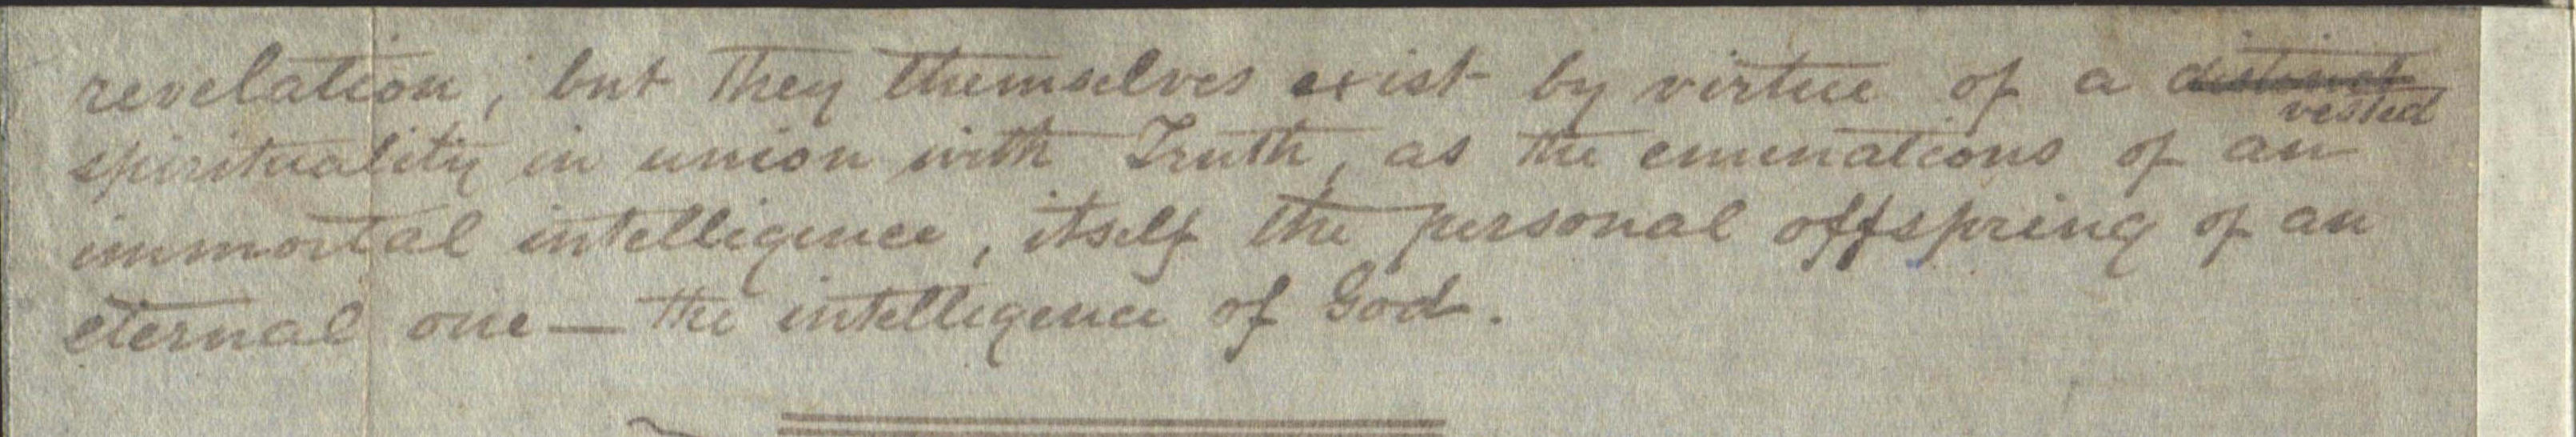 revelation; but they themselves exist by virtue of a distinct
vested
spirituality in union with Truth, as the emmnations of an
immortal intelligence, itself the personal offspring of an
eternal one — the intelligence of God.